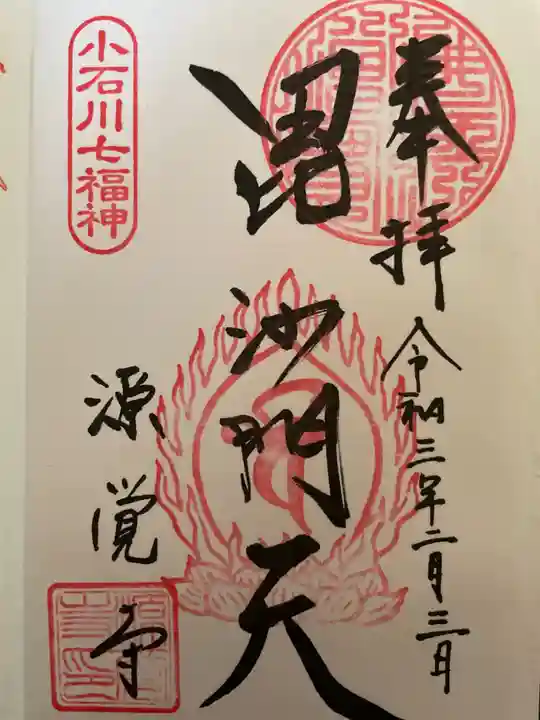 奉拝
令和三年二月三日
毘沙門天
小石川七福神
源覚寺